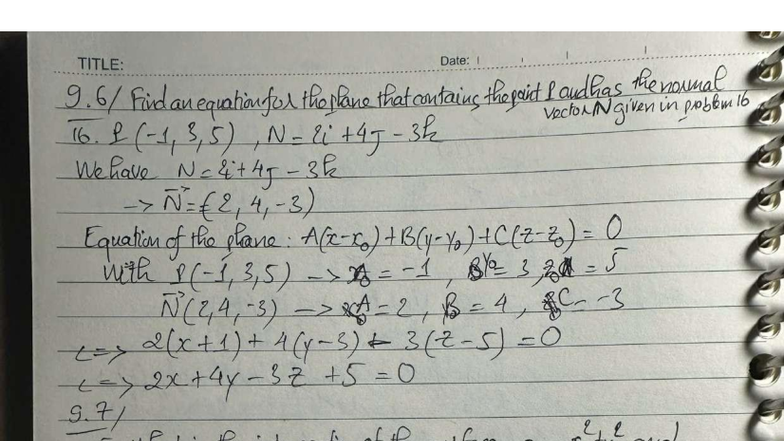 TITLE: Date:
9.6/ Find an equation for the plane that contains the point P and has the normal
vector N given in problem 16
16. P(-1, 3, 5), N = 2i + 4j - 3k
We have N = 2i + 4j - 3k
-> N⃗ = (2, 4, -3)
Equation of the plane: A(x-x₀) + B(y-y₀) + C(z-z₀) = 0
With P(-1, 3, 5) -> x₀ = -1, y₀ = 3, z₀ = 5
N⃗(2, 4, -3) -> A = 2, B = 4, C = -3
<=> 2(x+1) + 4(y-3) - 3(z-5) = 0
<=> 2x + 4y - 3z + 5 = 0
9.7/